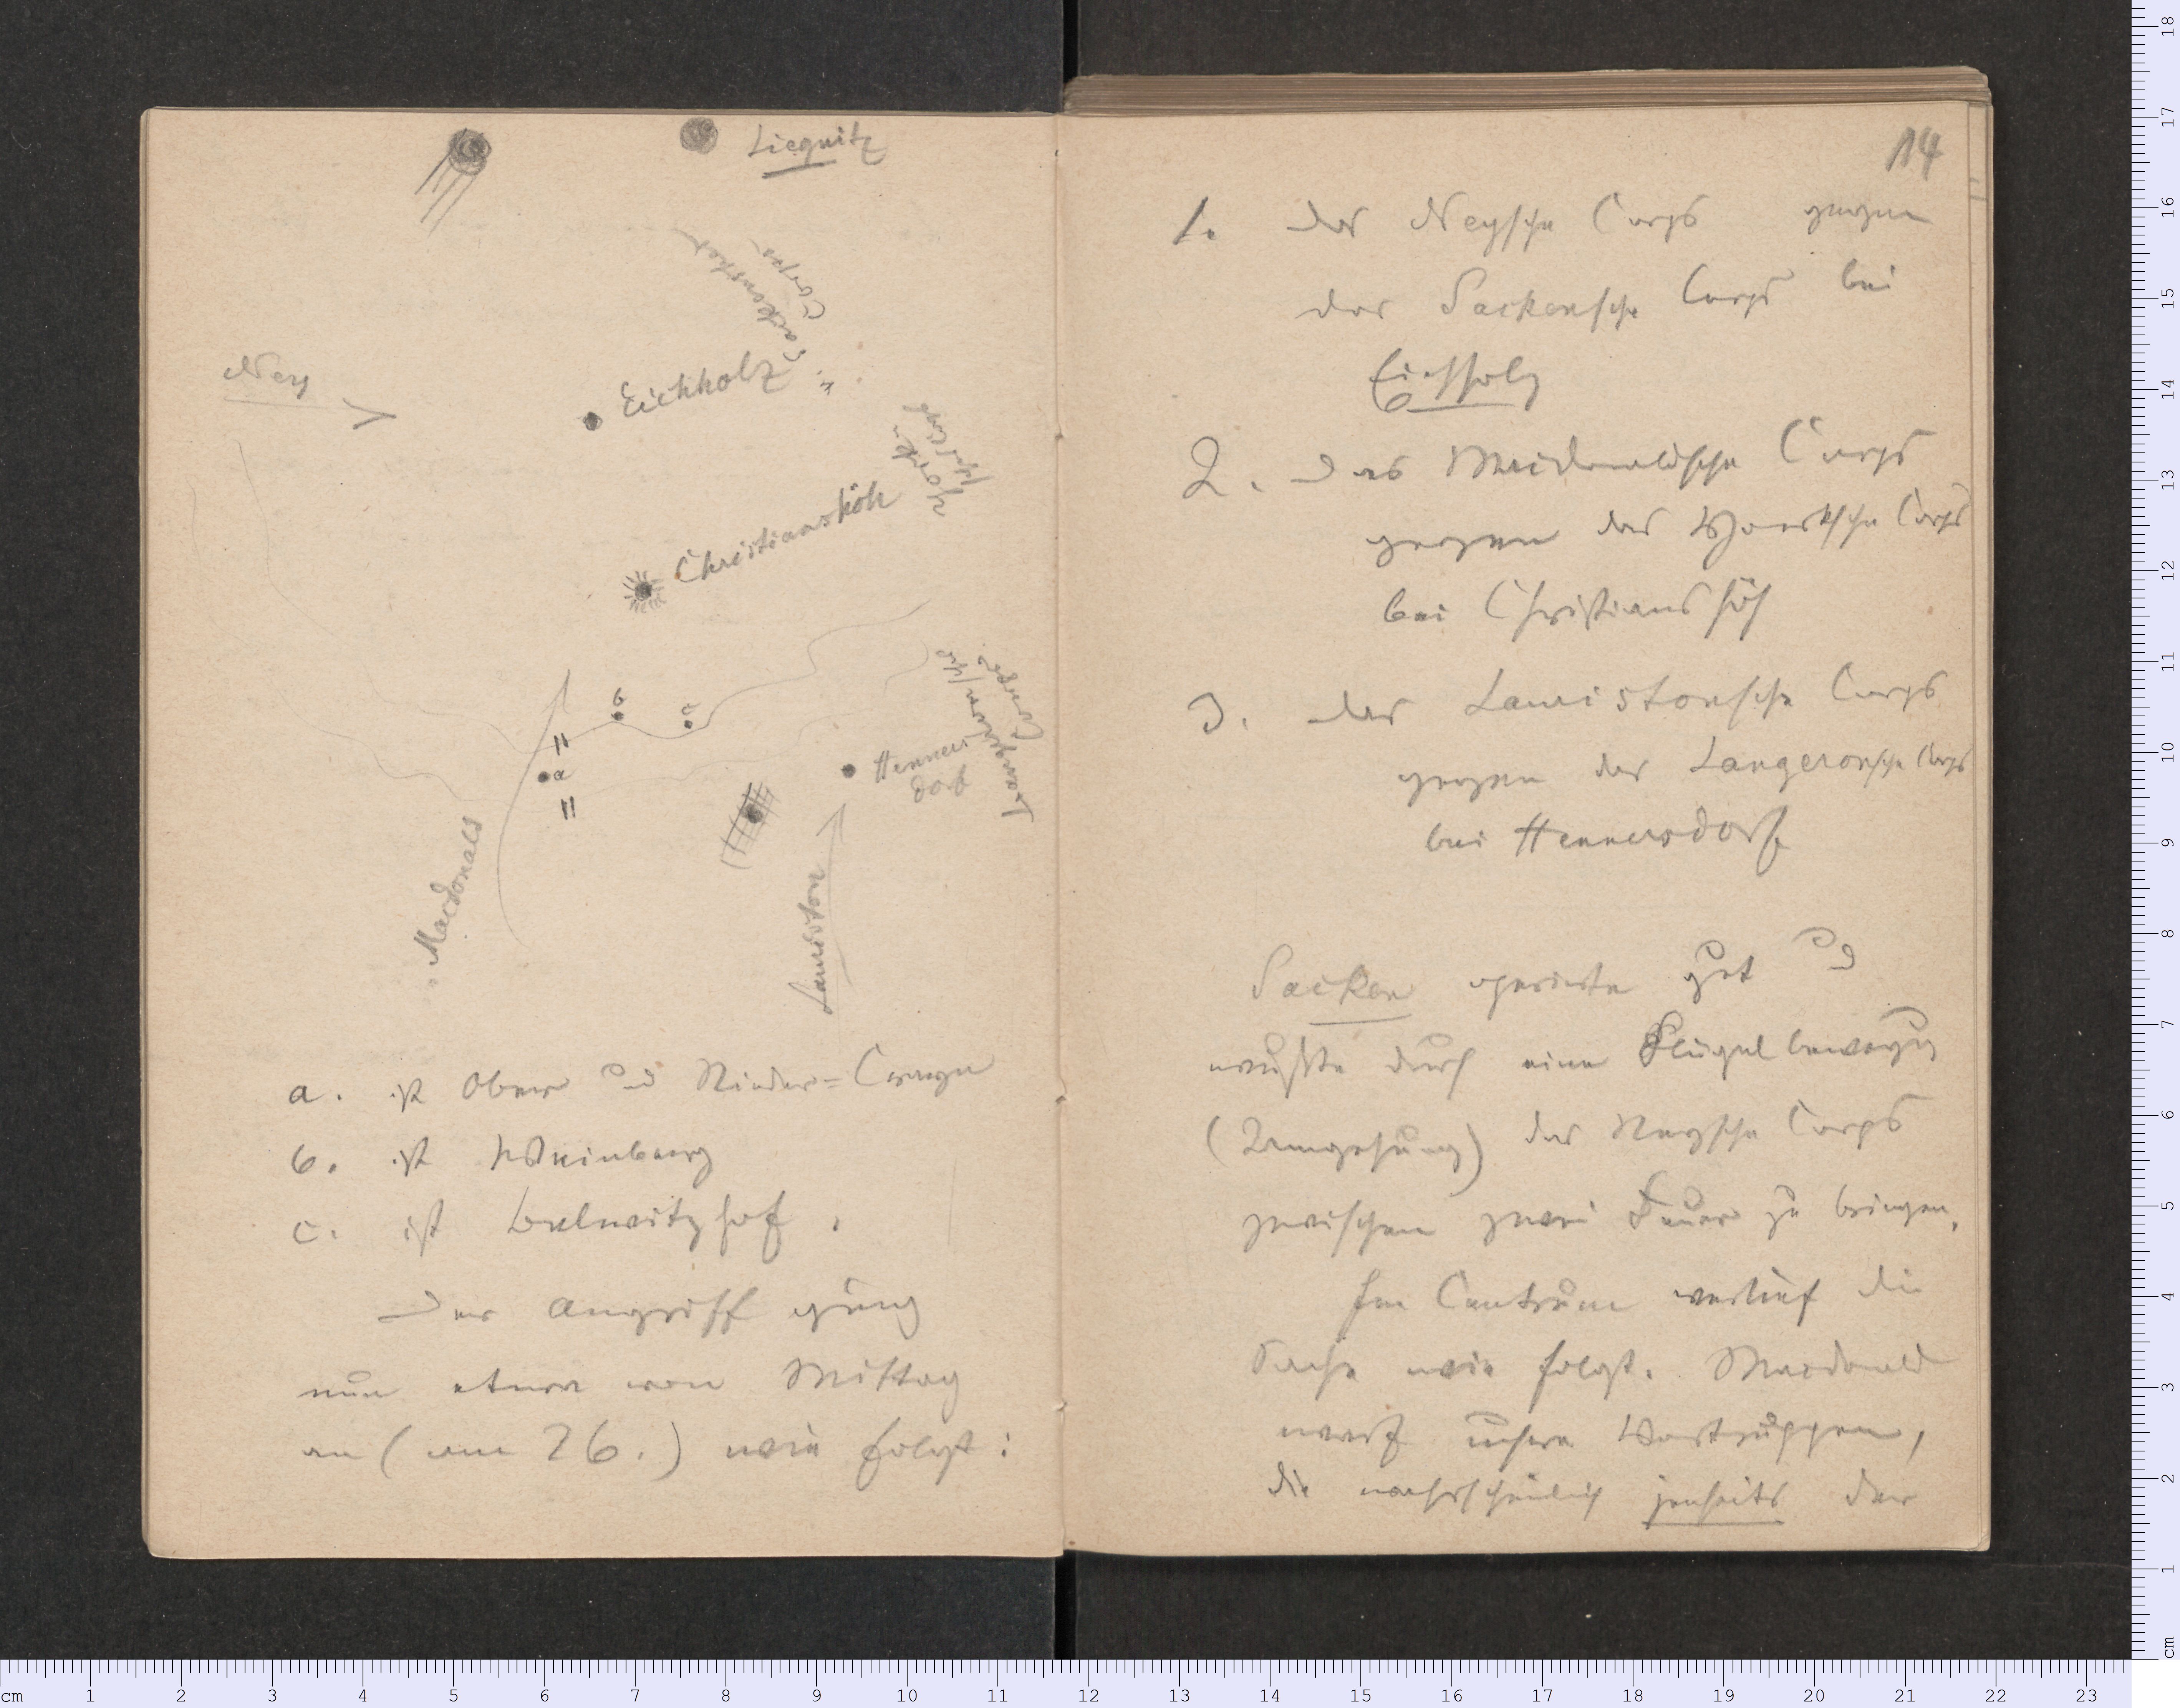 Liegnitz
Sackensches
Corps
Ney
Eichholz
Yorksches
Corps
Christianshöh
Langeronsche
Corps.
b
c
a
Henners
dorf
Macdonald
Lauriston
a. ist Ober und Nieder=Crayn
b. ist Weinberg
c. ist Belwitzhof.
Der Angriff ging
nun etwa von Mittag
an (am 26.) wie folgt:
14
1. das Neysche Corps gegen
das Sackensche Corps bei
Eichholz
2. Das Macdonaldsche Corps
gegen das Yorksche Corps
bei Christianshöh
3. das Lauristonsche Corps
gegen das Langeronsche Corps
bei Hennersdorf
Sacken operirte gut und
wußte durch eine Flügelbewegung
(Umgehung) das Neysche Corps
zwischen zwei Feuer zu bringen.
Im Centrum verlief die
Sache wie folgt. Macdonald
warf unsre Vortruppen,
die wahrscheinlich jenseits der